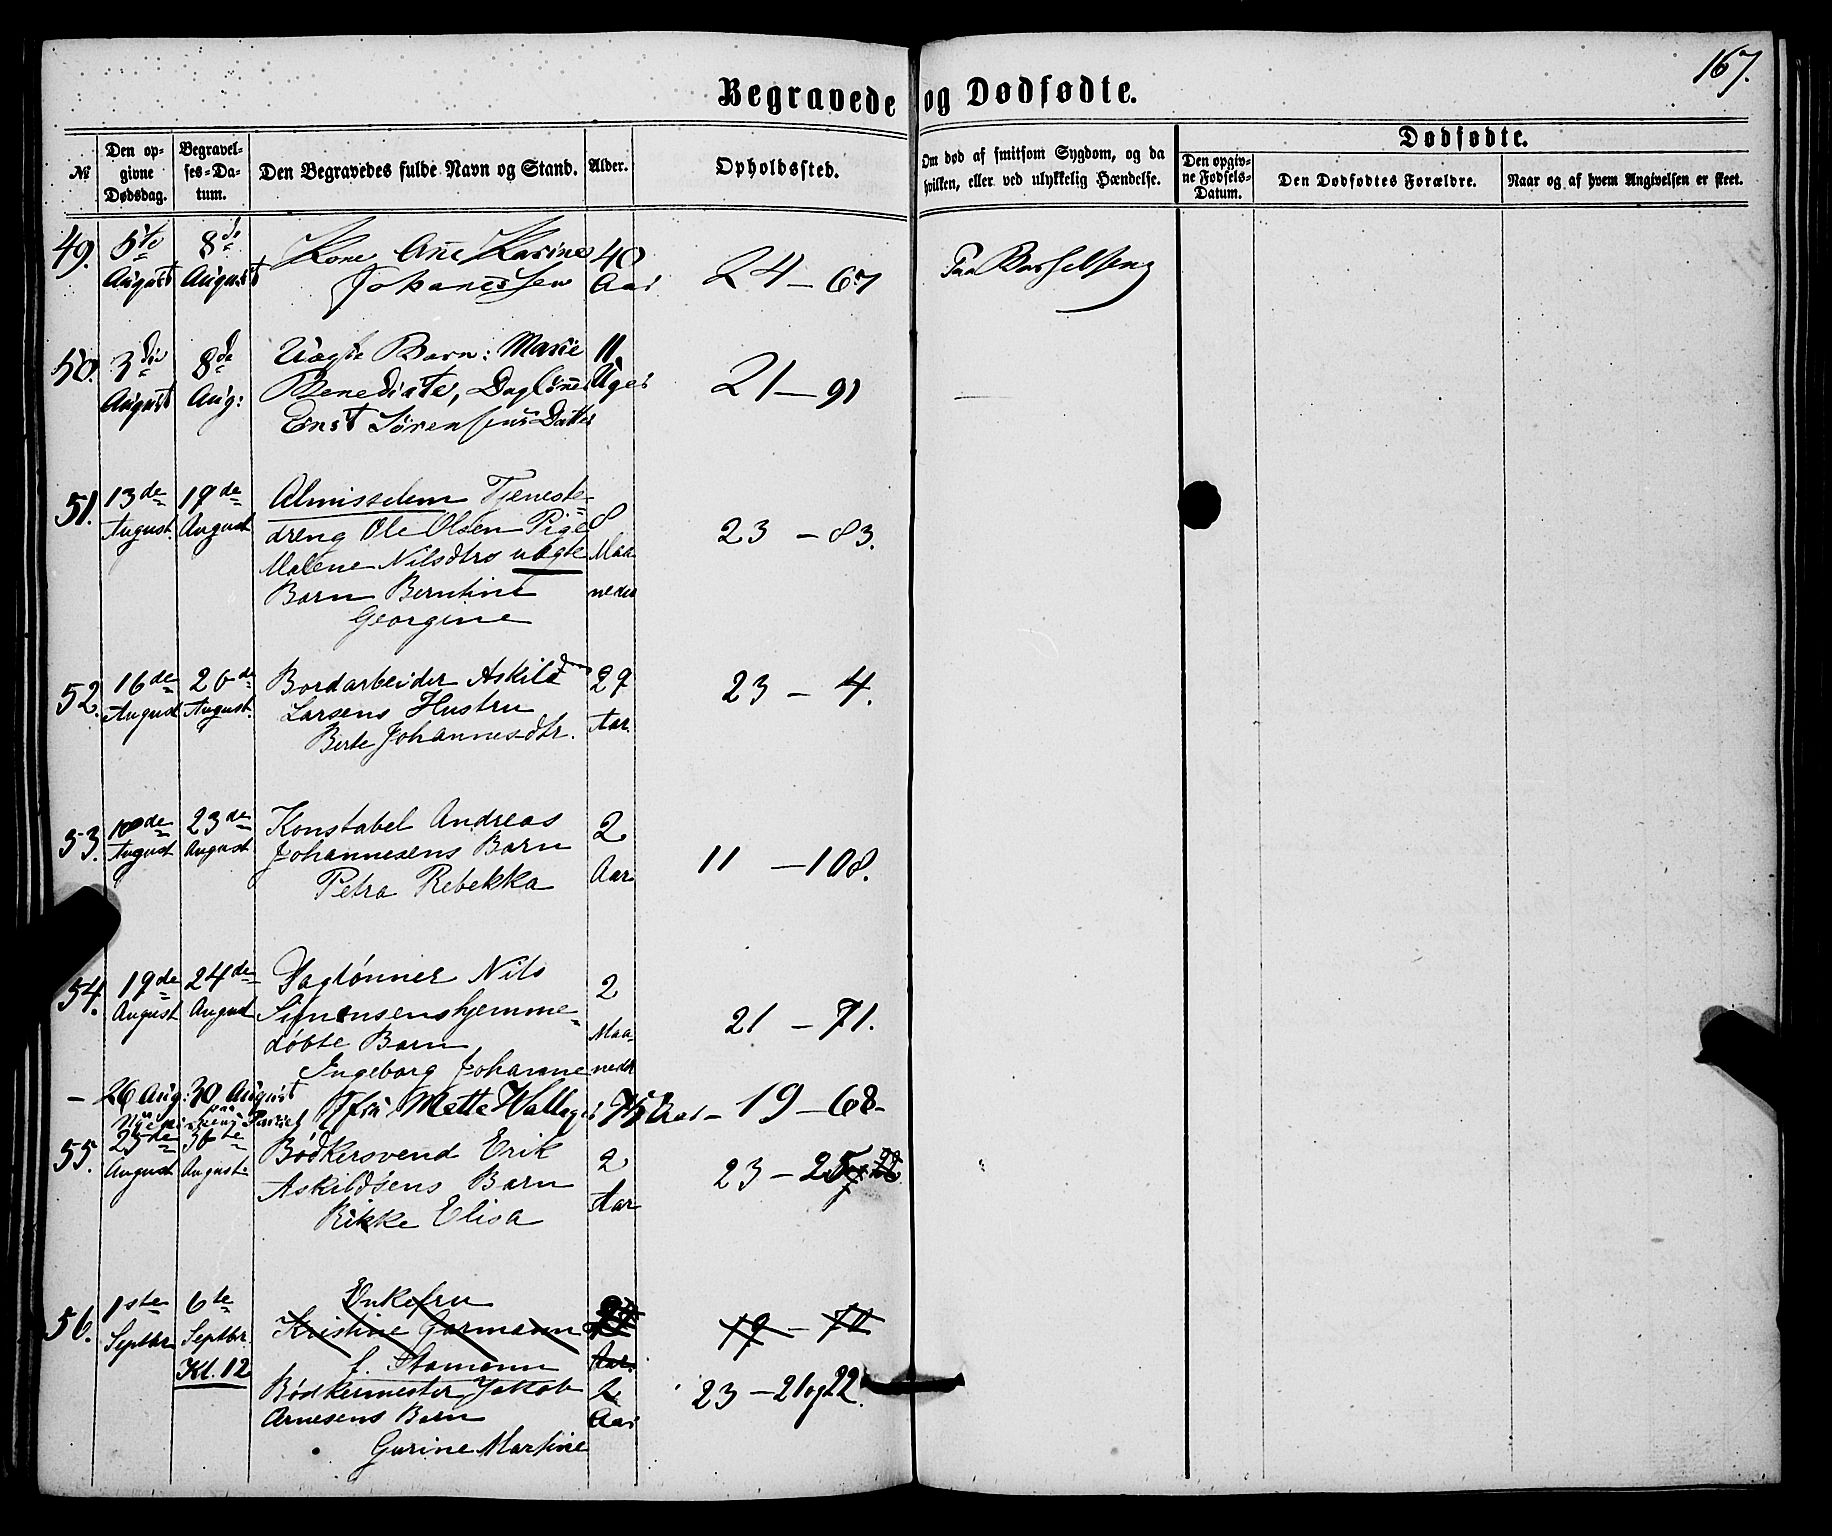 167.
Begravede og Dødfødte.
№
Den op-
givne
Dødsdag.
Begravel-
ses-Da-
tum.
Den Begravedes fulde Navn og Stand.
Alder.
Opholdssted.
Om død af smitsom Sygdom, og da
hvilken, eller ved ulykkelig Hændelse.
Dødfødte.
Den opgiv-
ne Fødsels-
Datum.
Den Dødfødtes Forældre.
Naar og af hvem Angivelsen er skeet.
49. 5te August 8de August
Kone Ane Karine
Johanessen
40 Aar
24 – 67
Paa Barselseng
50. 3die August 8de Aug:
Uægte Barn: Marie
Benedicte, Dagløner
Ernst Sørensens Datter
11 Uger
21 – 91
51. 13de August. 19de August
Almisselem Tjeneste-
dreng Ole Olsen Pige
Malene Nilsdtrs uægte
Barn Berntine
Georgine
8 Maa-
neder
23 – 83.
52. 16de August 20de August.
Bordarbeider Askild
Larsens Hustru
Berte Johannesdtr.
29 Aar.
23 – 4.
53. 18de August 23de August
Konstabel Andreas
Johannesens Barn
Petra Rebekka
2 Aar
11 – 108.
54. 19de August 24de August
Daglønner Nils
Simonsens hjemme-
døbte Barn
Ingeborg Johanne
2 Maa-
neder
21 – 71.
– 26 Aug: 30 August
Jfru Mette
75 Aar – 19 – 68 –
55. 25de August 30te August
Bødkersvend Erik
Askildsens Barn
Rikke Elisa
2 Aar
23 – 25
56. 1ste Septbr 6te Septbr.
Kl. 12
Enkefru
Kristine Garmann
f. Stamann
Aar.
19 – 70
Bødkermester Jakob
Arnesens Barn
Gurine Martine
2 Aar
23 – 21 og 22.